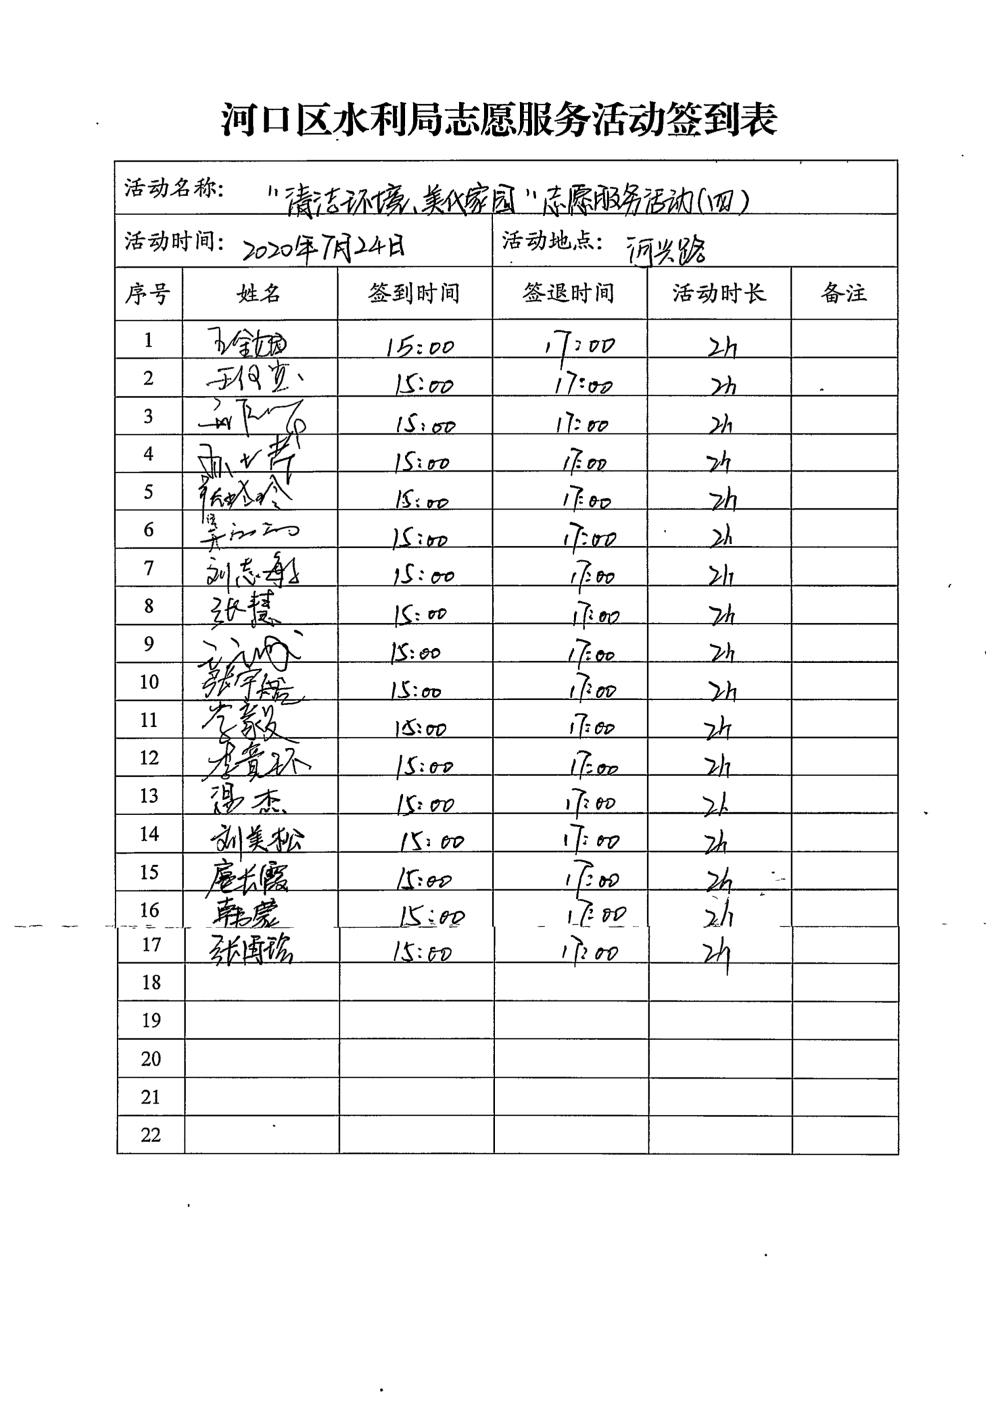 河口区水利局志愿服务活动签到表
活动名称: "清洁环境、美化家园"志愿服务活动(四)
活动时间: 2020年7月24日 活动地点: 河兴路
序号 姓名 签到时间 签退时间 活动时长 备注
1 15:00 17:00 2h
2 15:00 17:00 2h
3 15:00 17:00 2h
4 15:00 17:00 2h
5 15:00 17:00 2h
6 15:00 17:00 2h
7 刘志敏 15:00 17:00 2h
8 张慧 15:00 17:00 2h
9 15:00 17:00 2h
10 15:00 17:00 2h
11 李毅 15:00 17:00 2h
12 李竟环 15:00 17:00 2h
13 冯杰 15:00 17:00 2h
14 刘美松 15:00 17:00 2h
15 扈长霞 15:00 17:00 2h
16 韩蒙 15:00 17:00 2h
17 张博 15:00 17:00 2h
18
19
20
21
22